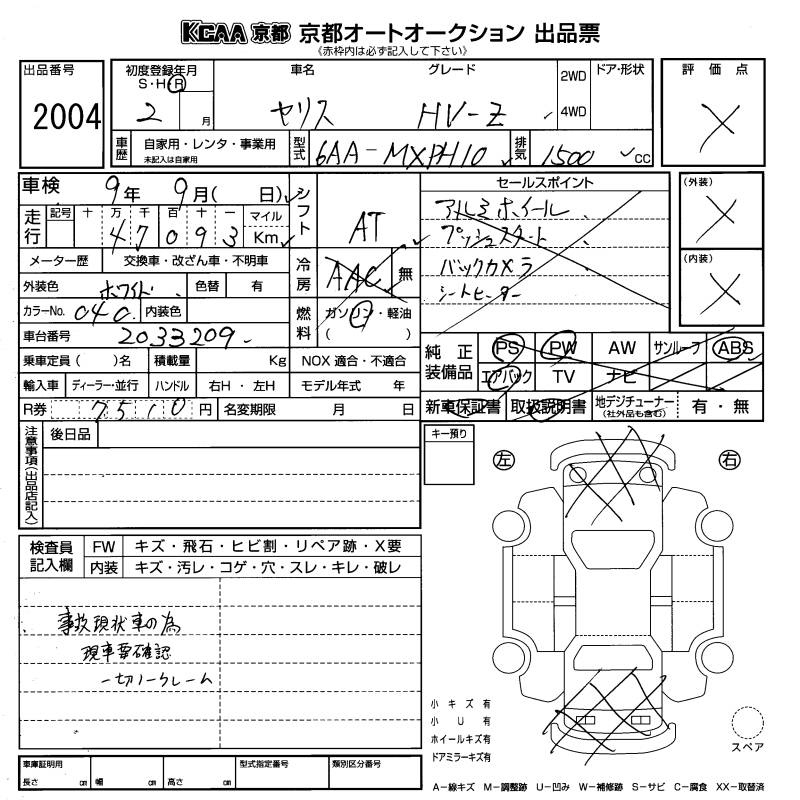 KCAA 京都 京都オートオークション 出品票
《赤枠内は必ず記入して下さい》
出品番号
2004
初度登録年月
S・H・R
2 月
車名
ヤリス
グレード
HV-Z
2WD
4WD
ドア・形状
評価点
車歴
自家用・レンタ・事業用
未記入は自家用
型式
6AA-MXPH10
排気
1500 cc
車検
9年 9月( 日)
走行
記号 十 万 千 百 十 一 マイル
4 7 0 9 3 Km
シフト
AT
メーター歴 交換車・改ざん車・不明車
冷房
AAC 無
外装色 ホワイト 色替 有
カラーNo. 040 内装色
燃料
ガソリン・軽油
( )
車台番号 2033209
乗車定員( )名 積載量 Kg NOX 適合・不適合
輸入車 ディーラー・並行 ハンドル 右H・左H モデル年式 年
R券 7510円 名変期限 月 日
セールスポイント
アルミホイール
プッシュスタート
バックカメラ
シートヒーター
(外装)
(内装)
純正装備品
PS PW AW サンルーフ ABS
エアバック TV ナビ
新車保証書 取扱説明書 地デジチューナー(社外品も含む) 有・無
注意事項(出品店記入)
後日品
キー預り
左
右
検査員記入欄
FW キズ・飛石・ヒビ割・リペア跡・X要
内装 キズ・汚レ・コゲ・穴・スレ・キレ・破レ
事故現状車の為
現車要確認
一切ノークレーム
小キズ有
小U有
ホイールキズ有
ドアミラーキズ有
スペア
車庫証明用
長さ cm 幅 cm 高さ cm
型式指定番号
類別区分番号
A-線キズ M-調整跡 U-凹み W-補修跡 S-サビ C-腐食 XX-取替済